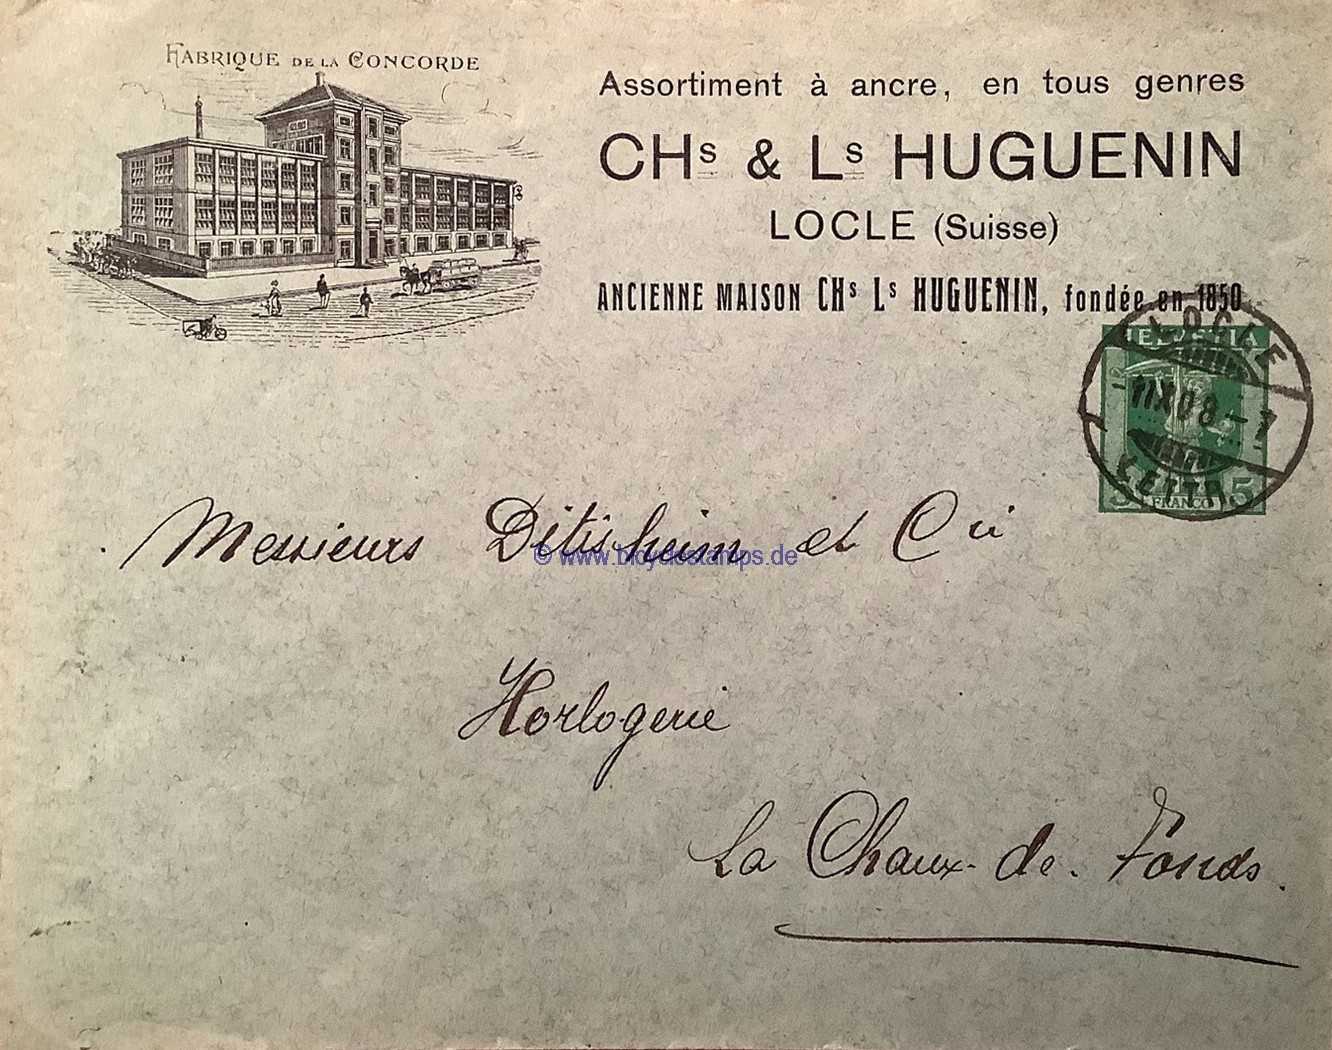 FABRIQUE DE LA CONCORDE
Assortiment à ancre, en tous genres
CHs & Ls HUGUENIN
LOCLE (Suisse)
ANCIENNE MAISON CHs Ls HUGUENIN, fondée en 1850
HELVETIA
LOCLE
-11X08-7
LETTR.
5 FRANCO 5
Messieurs Ditisheim et Cie
© www.bicyclestamps.de
Horlogerie
La Chaux-de-Fonds.